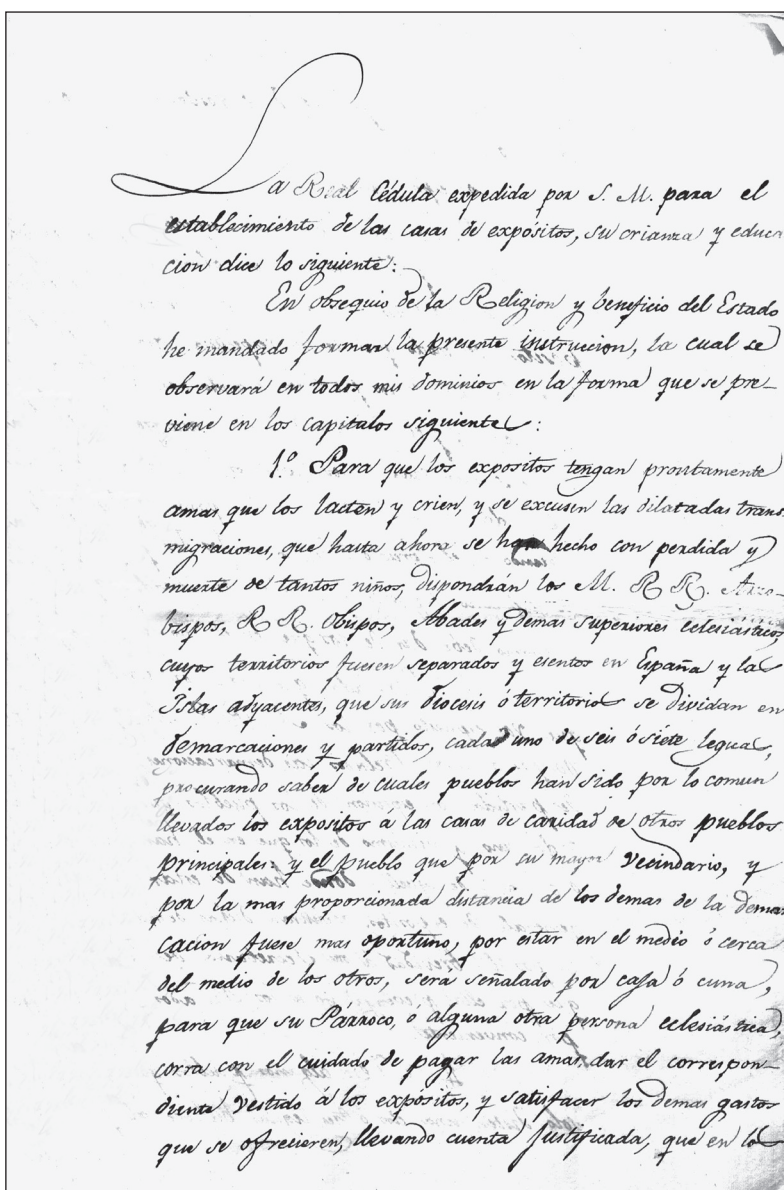 La Real Cédula expedida por S. M. para el
establecimiento de las casas de expósitos, su crianza y educa
cion dice lo siguiente:
En obsequio de la Religion y beneficio del Estado
he mandado formar la presente instruccion, la cual se
observará en todos mis dominios en la forma que se pre-
viene en los capitalos siguientes:
1.º Para que los expositos tengan prontamente
amas que los lacten y crien, y se excusen las dilatadas trans
migraciones, que hasta ahora se han hecho con perdida y
muerte de tantos niños, dispondrán los M. R R. Arzo-
bispos, R R. Obispos, Abades y demas superiores eclesiásticos,
cuyos territorios fuesen separados y esentos en España y las
Islas adyacentes, que sus diocesis ó territorios se dividan en
demarcaciones y partidos, cada uno de seis ó siete leguas,
procurando saber de cuales pueblos han sido por lo comun
llevados los expositos á las casas de caridad de otros pueblos
principales: y el pueblo que por su mayor vecindario, y
por la mas proporcionada distancia de los demas de la demar
cacion fuese mas oportuno, por estar en el medio ó cerca
del medio de los otros, será señalado por casa ó cuna,
para que su Párroco, o alguna otra persona eclesiástica,
corra con el cuidado de pagar las amas, dar el correspon-
diente vestido á los expositos, y satisfacer los demas gastos
que se ofrecieren, llevando cuenta justificada, que en los